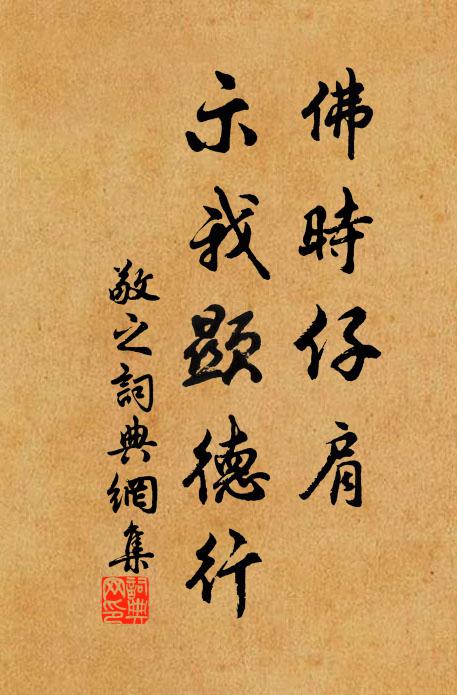 佛時仔肩
示我顯德行
敬之詞典網集
詞典網印